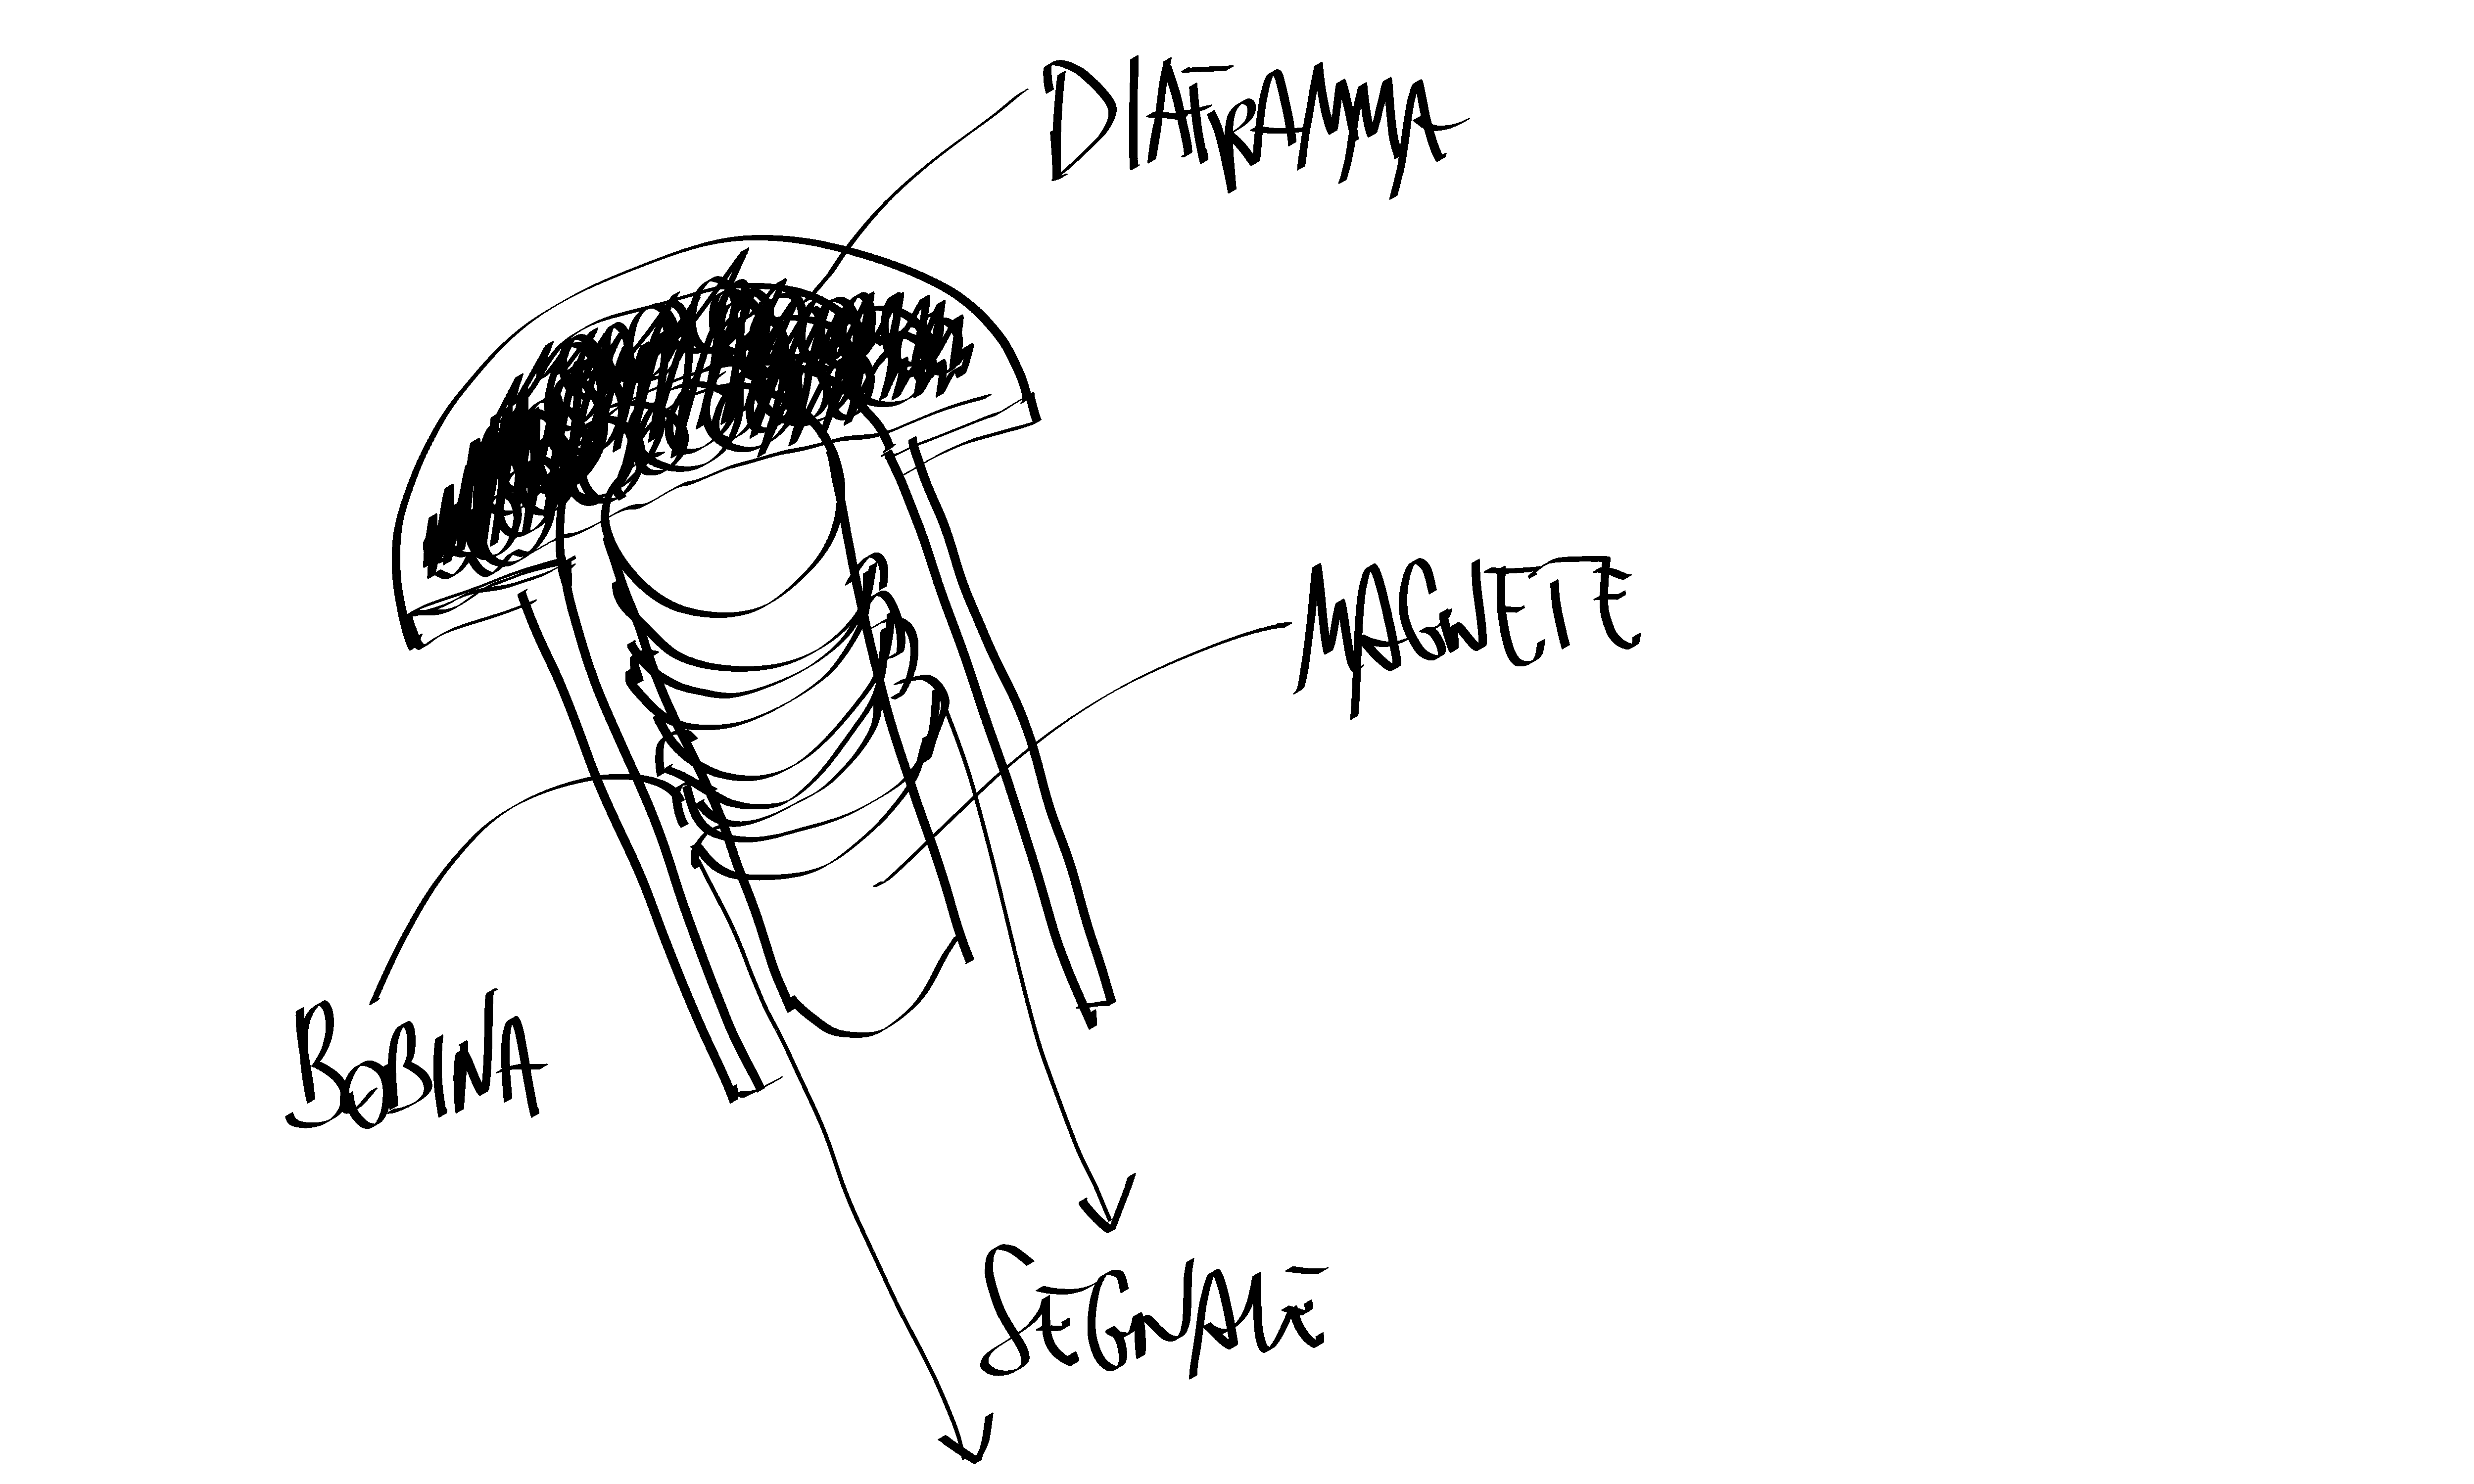 DIAFRAMMA
MAGNETE
BOBINA
SEGNALE